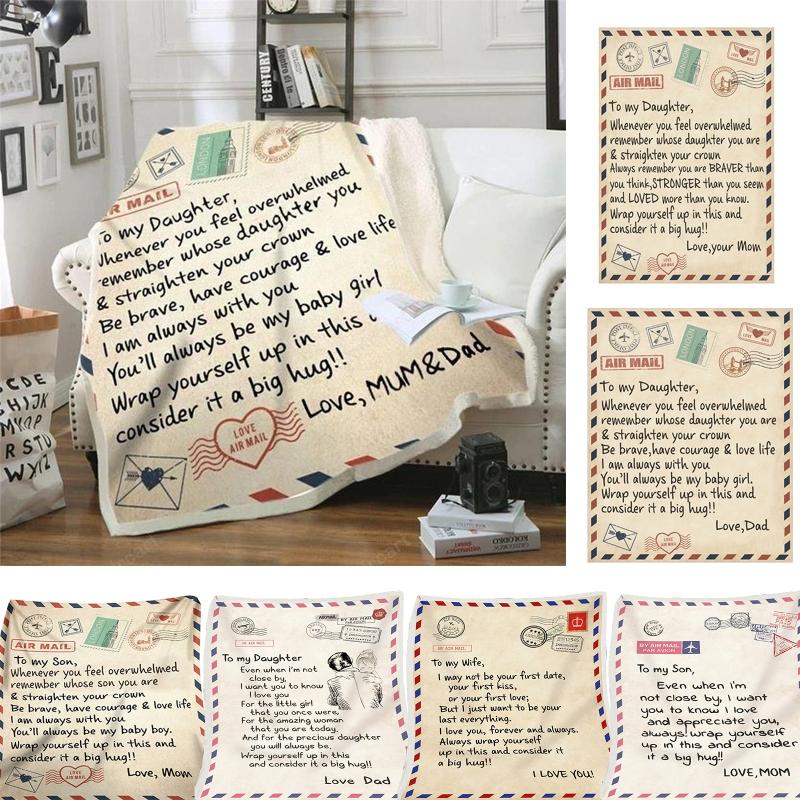 CENTURY
LONDON
AIR MAIL
To my Daughter,
Whenever you feel overwhelmed
remember whose daughter you
& straighten your crown
Be brave, have courage & love life
I am always with you
You'll always be my baby girl
Wrap yourself up in this
consider it a big hug!!
Love, MUM&Dad
LOVE
AIR MAIL
LONDON
AIR MAIL
To my Daughter,
Whenever you feel overwhelmed
remember whose daughter you are
& straighten your crown
Always remember you are BRAVER than
you think,STRONGER than you seem
and LOVED more than you know.
Wrap yourself up in this and
consider it a big hug!!
Love,your Mom
LOVE
AIR MAIL
LONDON
AIR MAIL
To my Daughter,
Whenever you feel overwhelmed
remember whose daughter you are
& straighten your crown
Be brave,have courage & love life
I am always with you
You'll always be my baby girl.
Wrap yourself up in this and
consider it a big hug!!
Love,Dad
LOVE
AIR MAIL
AIR MAIL
To my Son,
Whenever you feel overwhelmed
remember whose son you are
& straighten your crown
Be brave, have courage & love life
I am always with you
You'll always be my baby boy.
Wrap yourself up in this and
consider it a big hug!!
Love, Mom
To my Daughter
Even when i'm not
close by,
I want you to know
I love you
For the little girl
that you once were,
For the amazing woman
that you are today.
And for the precious daughter
you will always be.
Wrap yourself up in this
and consider it a big hug!!
Love Dad
To my Wife,
I may not be your first date,
your first kiss,
or your first love;
But I just want to be your
last everything.
I love you, forever and always.
Always wrap yourself
up in this and consider it
a big hug!!
I LOVE YOU!
BY AIR MAIL
PAR AVION
To my Son,
Even when i'm
not close by, I want
you to know I love
and appreciate you,
always!wrap yourself
up in this and consider
it a big hug!!
LOVE,MOM